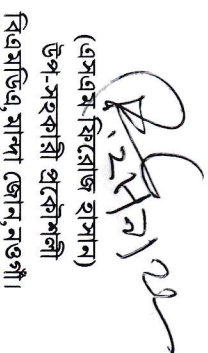 (এসএম-ফিরোজ হাসান)
উপ-সহকারী প্রকৌশলী
বিএমডিএ, মান্দা জোন, নওগাঁ।